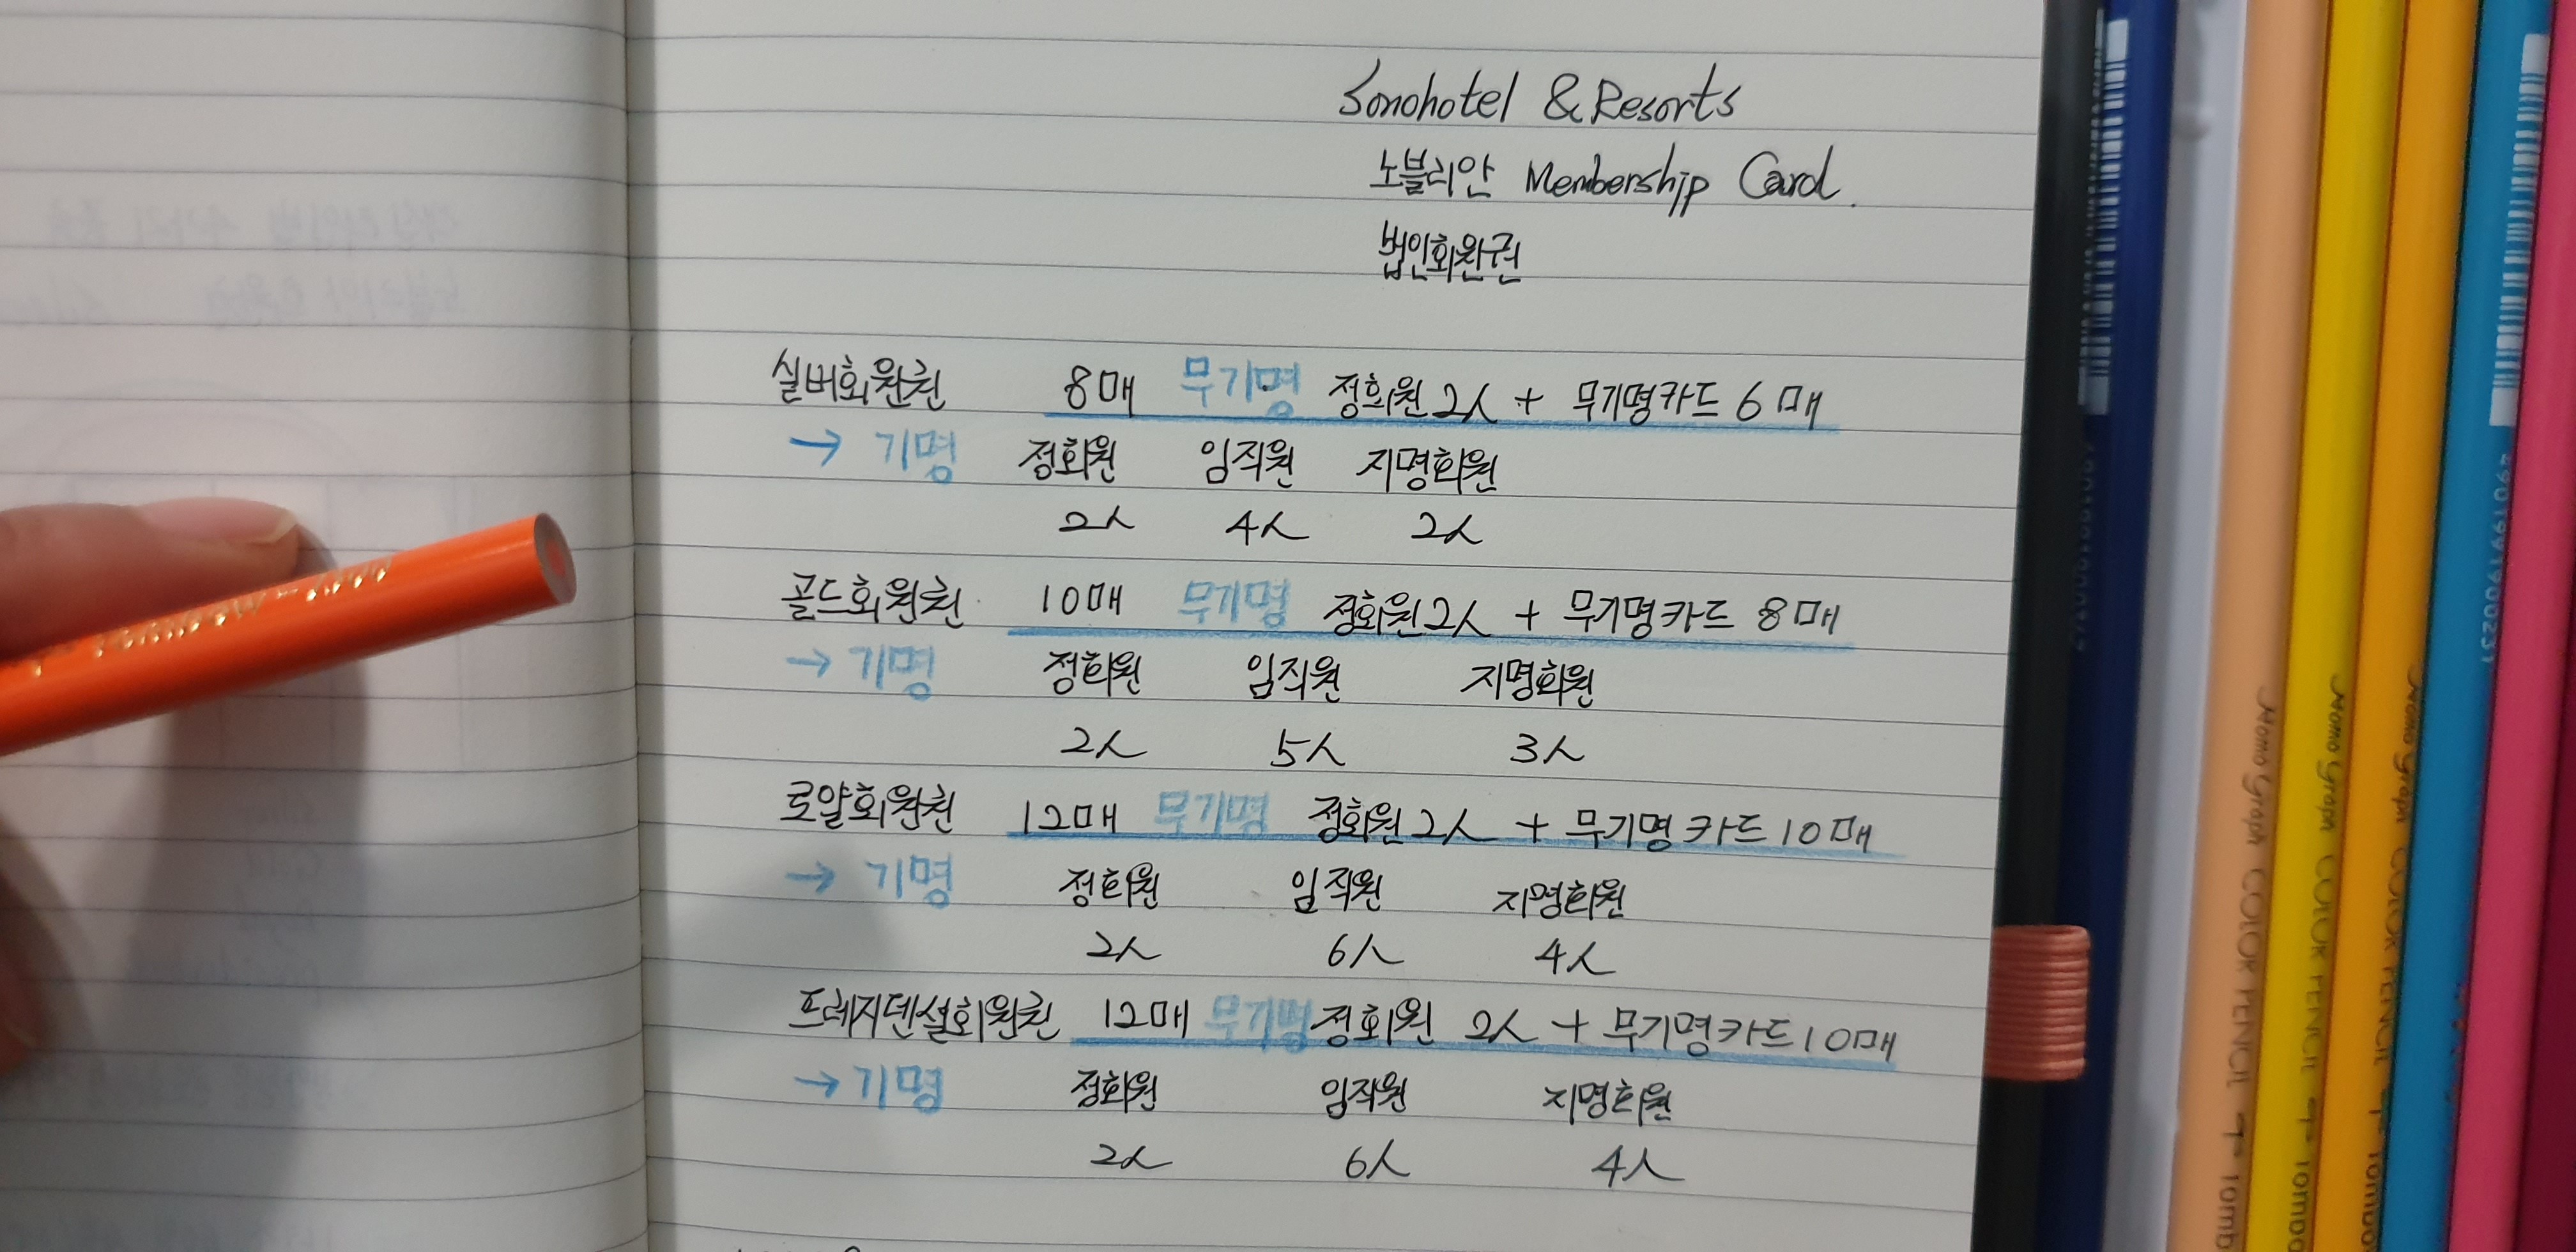 Sonohotel & Resorts
노블리안 Membership Card.
법인회원권
실버회원권 8매 무기명 정회원 2人 + 무기명카드 6매
→ 기명 정회원 임직원 지명회원
2人 4人 2人
골드회원권 10매 무기명 정회원 2人 + 무기명카드 8매
→ 기명 정회원 임직원 지명회원
2人 5人 3人
로얄회원권 12매 무기명 정회원 2人 + 무기명카드 10매
→ 기명 정회원 임직원 지명회원
2人 6人 4人
프레지덴셜회원권 12매 무기명 정회원 2人 + 무기명카드 10매
→ 기명 정회원 임직원 지명회원
2人 6人 4人
Homo Graph COLOR PENCIL
Homo Graph COLOR PENCIL
Homo Graph COLOR PENCIL